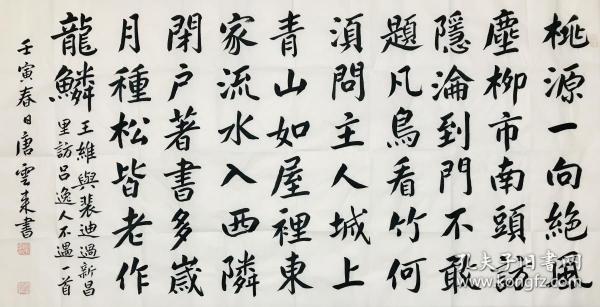 桃源一向絕風
塵柳市南頭訪
隱淪到門不敢
題凡鳥看竹何
須問主人城上
青山如屋裡東
家流水入西隣
閉户著書多歲
月種松皆老作
龍鱗
王維與裴迪過新昌
里訪呂逸人不遇一首
壬寅春日唐雲來書
孔夫子旧书网